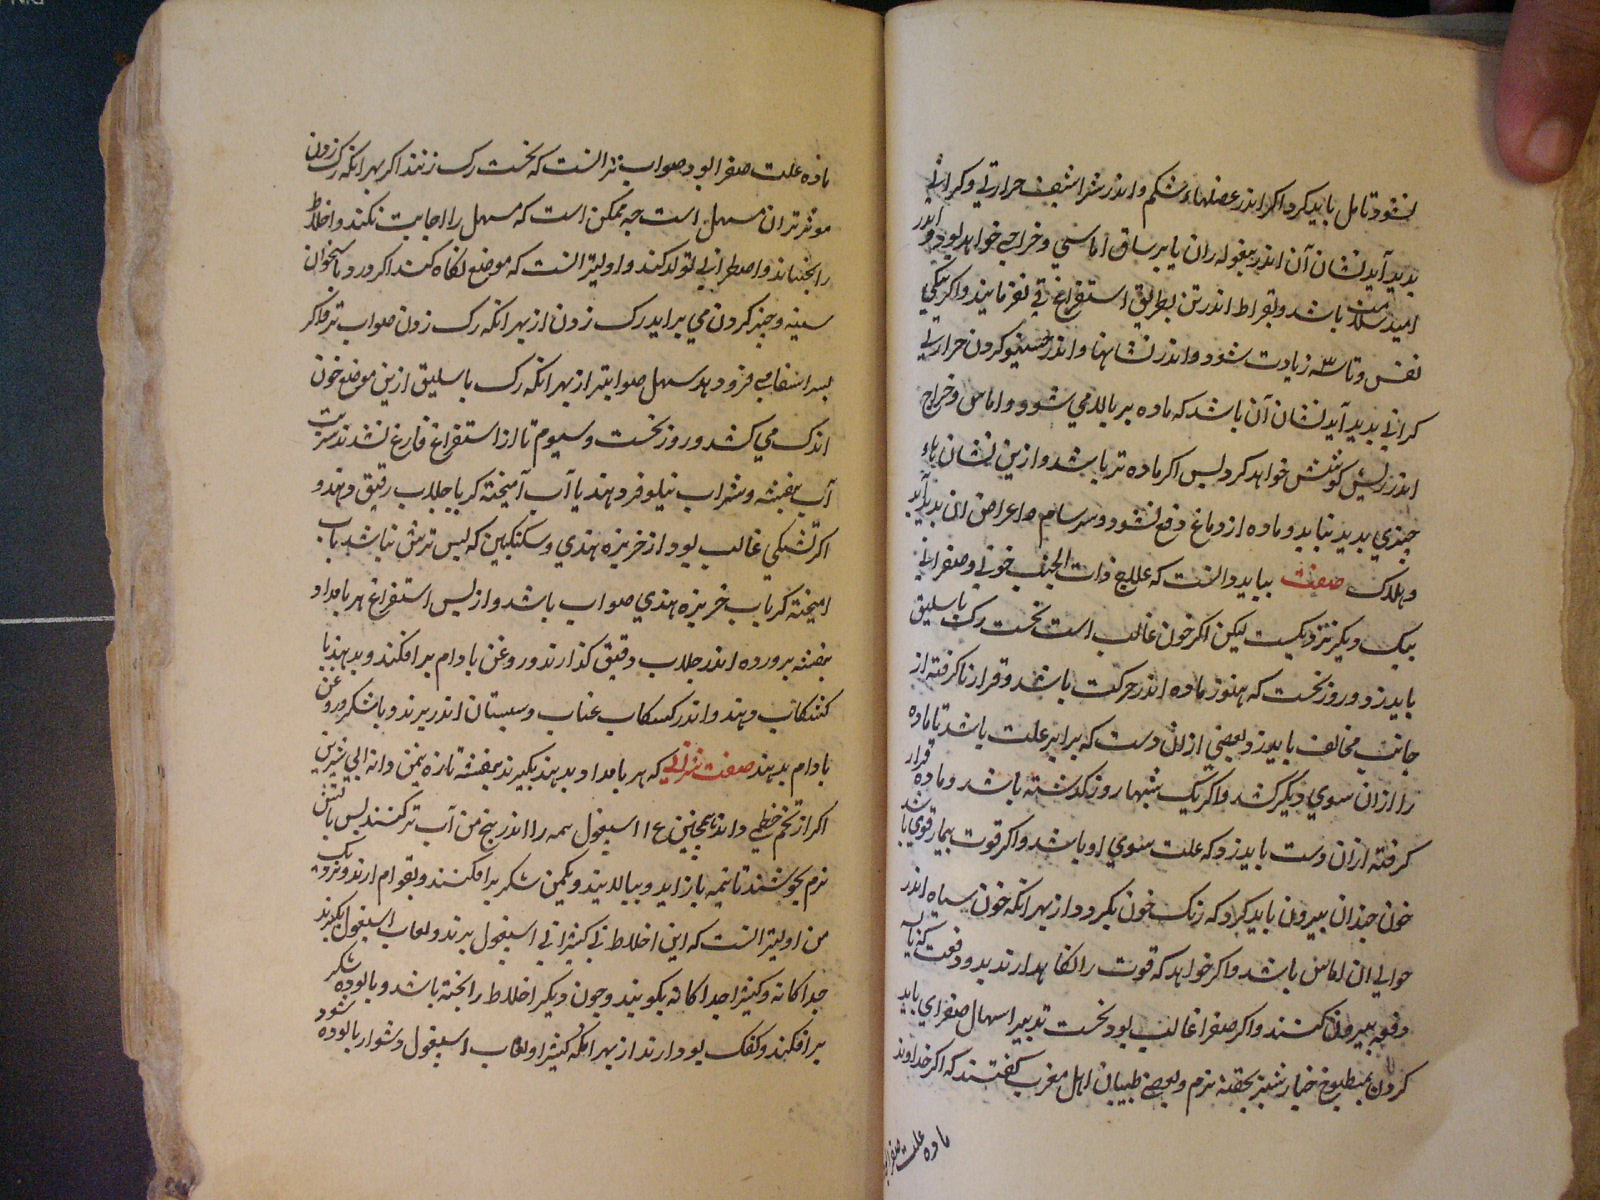 نشود تامل باید کرد اکر اندر عضلهاء شکم و اندر شراسیف حرارتی و کرانی
بدید آید نشان آن اندر بیغوله ران یا بر ساق اماسی و خراجی خواهد بود و اندر
امید سلامت باشد و بقراط اندرین بطریق استفراغ قی نفرمایند و اکر تنکی
نفس و تاسه زیادت شود و اندر نشانها و اندر سینه کردن حرارتی
کرانی بدید آید نشان آن باشد که ماده بر بالا می شود و اماس و خراج
اندر پس کوشش خواهد کرد پس اکر ماده تر باشد و ازین نشان هاء
چیزی بدید نیاید و ماده از دماغ دفع نشود و سرسام و اعراض ان بدید آید
و هلاک صفت بباید دانست که علاج ذات الجنب خونی و صفرائی
بیک دیکر نزدیکست لیکن اکر خون غالب است نخست رک باسلیق
باید زد و روز نخست که هنوز ماده اندر حرکت باشد و قرار ناکرفته از
جانب مخالف باید زد یعنی ازان دست که برابر علت باشد تا ماده
را ازان سوی دیکر کشد و اکر یک شبهاروز کذشته باشد و ماده قرار
کرفته ازان دست باید زد که علت سوی او باشد و اکر قوت بیمار قوی باشد
خون چندان بیرون باید کرد که رنک خون بکردد از بهر انکه خون سیاه اندر
حوالی ان اماس باشد و اکر خواهد که قوت را نکاه دارند بدو دفعت یا سه
دفعه بیرون کنند و اکر صفرا غالب بود نخست تدبیر اسهال صفرای باید
کردن بمطبوخ خیارشنبر بحقنه نرم و بعضی طبیبان اهل مغرب کفتند که اکر خداوند
ماده علت صفرا بود
ماده علت صفرا بود صواب تر انست که نخست رک زنند اکر بهر انکه رک زدن
موثرتر ازان مسهل است جه ممکن است که مسهل را اجابت نکند و اخلاط
را بجنباند و اضطرابی تولد کند و اولیتر انست که موضع نکاه کنند اکر درد باستخوان
سینه و چنبر کردن می براید رک زدن از بهر انکه رک زدن صواب تر و اکر
بسر اسفل می فرود اید مسهل صوابتر از بهر انکه رک باسلیق ازین موضع خون
اندک می کشد و روز نخست و سیوم تا از استفراغ فارغ نشدند شربت
آب بنفشه و شراب نیلوفر دهند با آب آمیخته کر با جلاب رقیق دهند و
اکر تشنکی غالب بود از خربزه هندی و سکنکبین که بس ترش نباشد با آب
امیخته کر با آب خربزه هندی صواب باشد و از پس استفراغ هر بامداد
بنفشه پرورده اندر جلاب رقیق کذارند و روغن بادام برافکنند و بدهند یا
کشکاب دهند و اندر کشکاب عناب و سبستان اندر پزند و باشکر و روغن
بادام بدهند صفت شرابی که هر بامداد بدهند بکیرند بنفشه تازه یمن دانه آبی شیرین
اکر از تخم خطمی و اند همچنین ع ا اسبغول همه را اندر پنج من آب تر کنند پس باتش
نرم بجوشند تا نیمه باز اید و ببالایند و یکمن شکر برافکنند و بقوام ارند و نزدیک
من اولیتر انست که این اخلاط بی کتیرا بی اسبغول بپزند و لعاب اسبغول بکیرند
جداکانه و کتیرا جداکانه بکوبند و چون دیکر اخلاط را پخته باشد و بالوده شکر
برافکنند و کفک بردارند از بهر انکه کتیرا و لعاب اسبغول دشوار بالوده شود